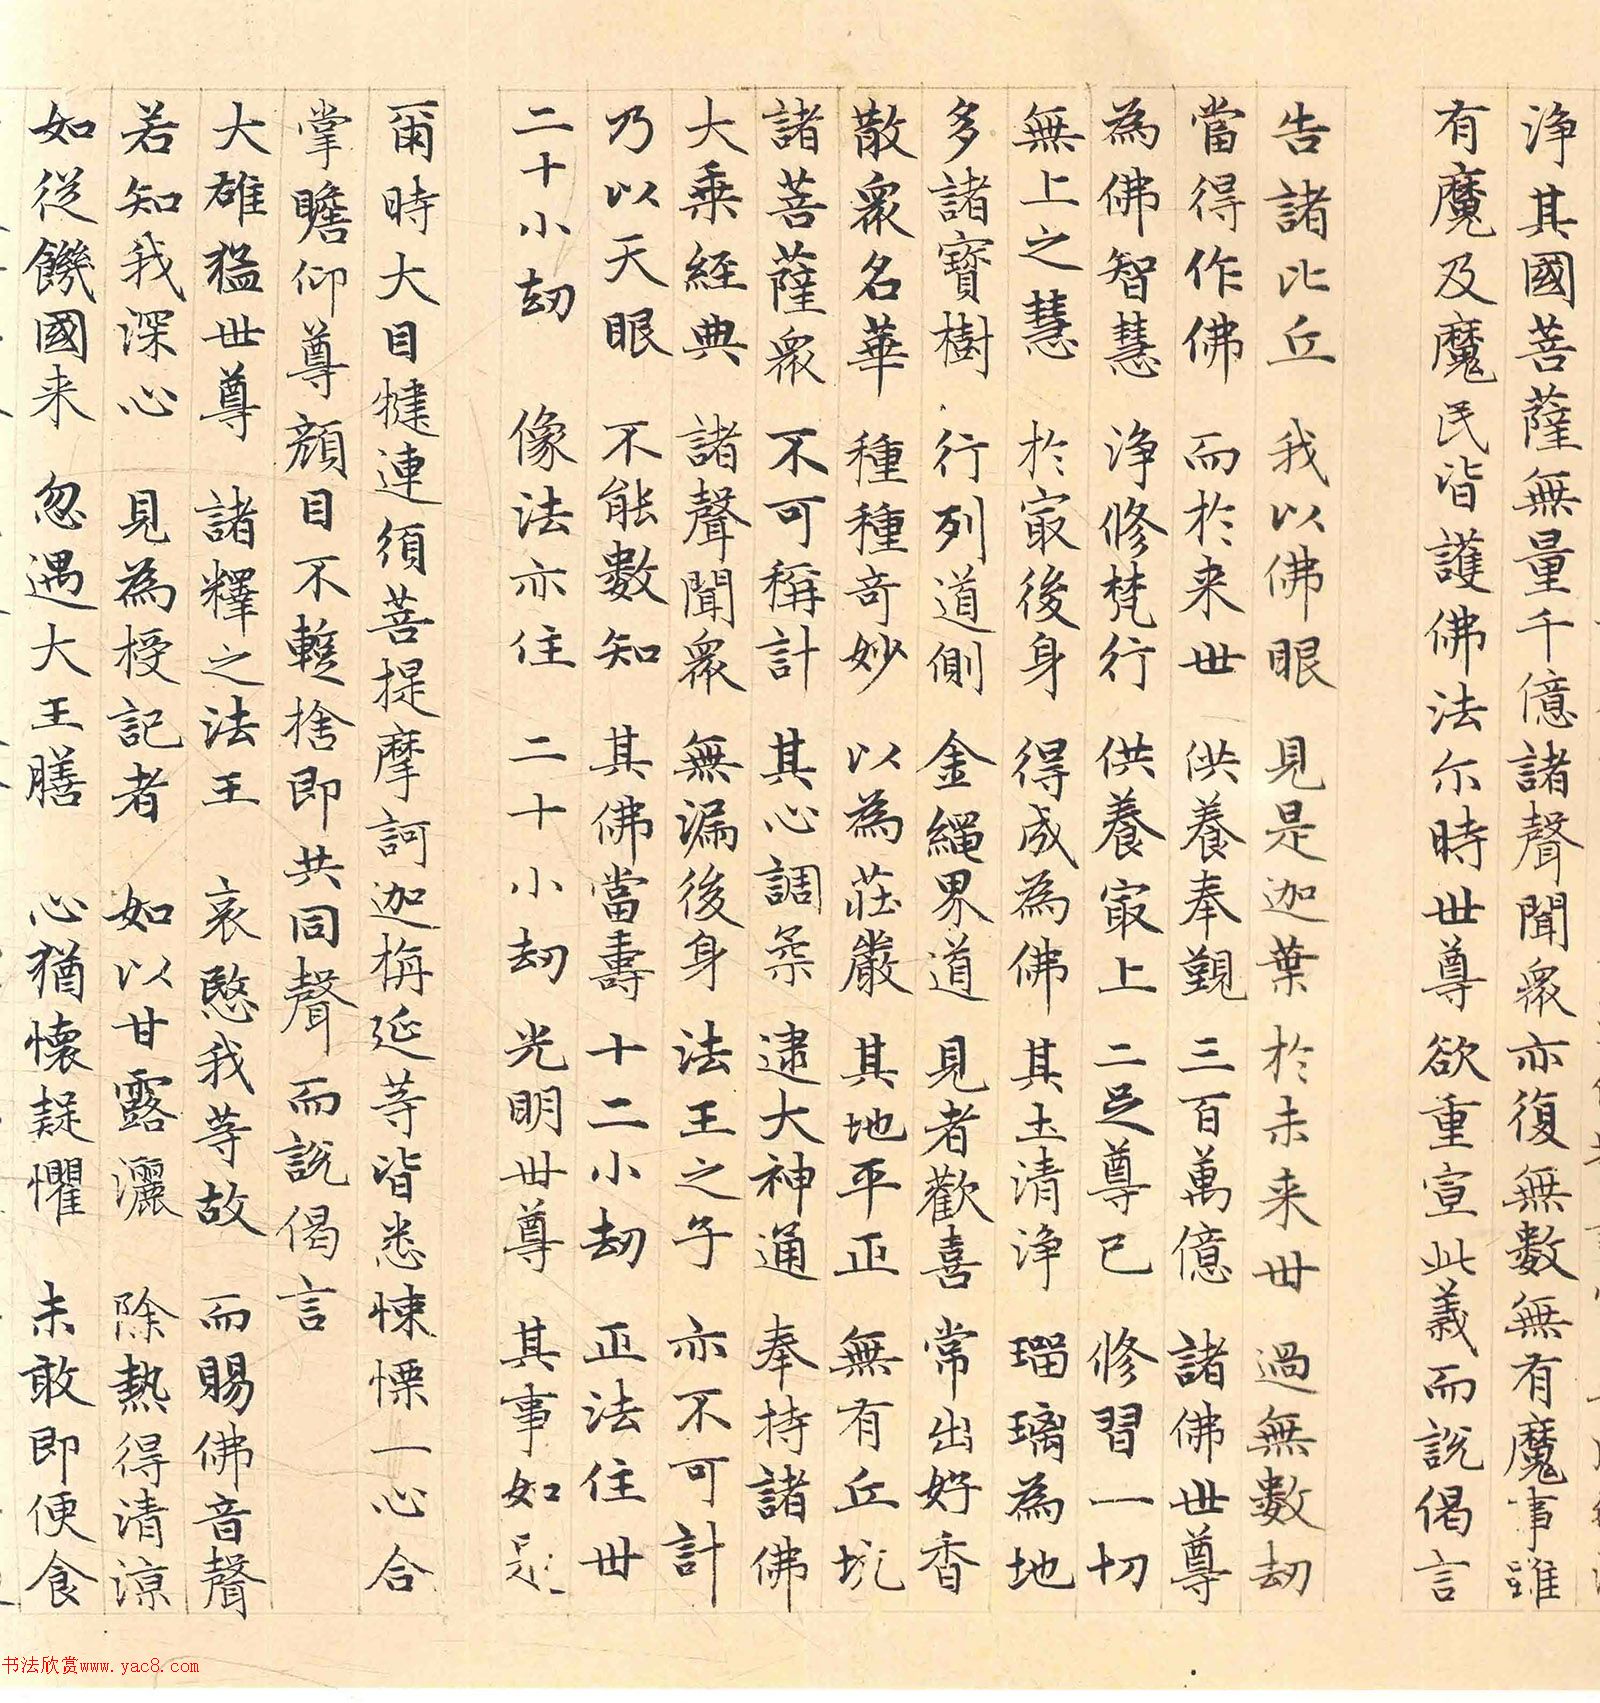 淨其國菩薩無量千億諸聲聞眾亦復無數無有魔事雖
有魔及魔民皆護佛法尒時世尊欲重宣此義而說偈言
告諸比丘 我以佛眼 見是迦葉 於未来世 過無數劫
當得作佛 而於来世 供養奉覲 三百萬億 諸佛世尊
為佛智慧 淨修梵行 供養㝡上 二足尊已 修習一切
無上之慧 於㝡後身 得成為佛 其土清淨 瑠璃為地
多諸寶樹 行列道側 金繩界道 見者歡喜 常出好香
散眾名華 種種奇妙 以為莊嚴 其地平正 無有丘坑
諸菩薩眾 不可稱計 其心調柔 逮大神通 奉持諸佛
大乘經典 諸聲聞眾 無漏後身 法王之子 亦不可計
乃以天眼 不能數知 其佛當壽 十二小劫 正法住世
二十小劫 像法亦住 二十小劫 光明世尊 其事如是
爾時大目犍連須菩提摩訶迦栴延等皆悉悚慄一心合
掌瞻仰尊顏目不暫捨即共同聲而說偈言
大雄猛世尊 諸釋之法王 哀愍我等故 而賜佛音聲
若知我深心 見為授記者 如以甘露灑 除熱得清涼
如從饑國来 忽遇大王膳 心猶懷疑懼 未敢即便食
书法欣赏www.yac8.com